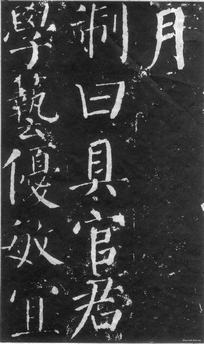 月
制曰具官君
學藝優敏宜